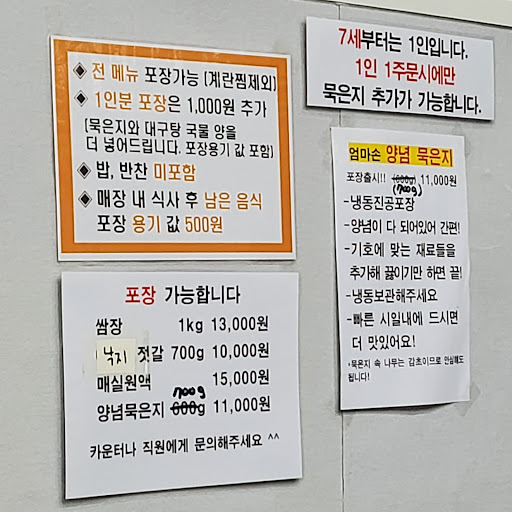 ◈ 전 메뉴 포장가능 [계란찜제외]
◈ 1인분 포장은 1,000원 추가
[묵은지와 대구탕 국물 양을
더 넣어드립니다. 포장용기 값 포함]
◈ 밥, 반찬 미포함
◈ 매장 내 식사 후 남은 음식
포장 용기 값 500원
7세부터는 1인입니다.
1인 1주문시에만
묵은지 추가가 가능합니다.
엄마손 양념 묵은지
포장출시!! (600g) 11,000원
(700g)
-냉동진공포장
-양념이 다 되어있어 간편!
-기호에 맞는 재료들을
추가해 끓이기만 하면 끝!
-냉동보관해주세요
-빠른 시일내에 드시면
더 맛있어요!
*묵은지 속 나무는 감초이므로 안심해도
됩니다!
포장 가능합니다
쌈장 1kg 13,000원
낙지 젓갈 700g 10,000원
매실원액 15,000원
700g
양념묵은지 600g 11,000원
카운터나 직원에게 문의해주세요 ^^